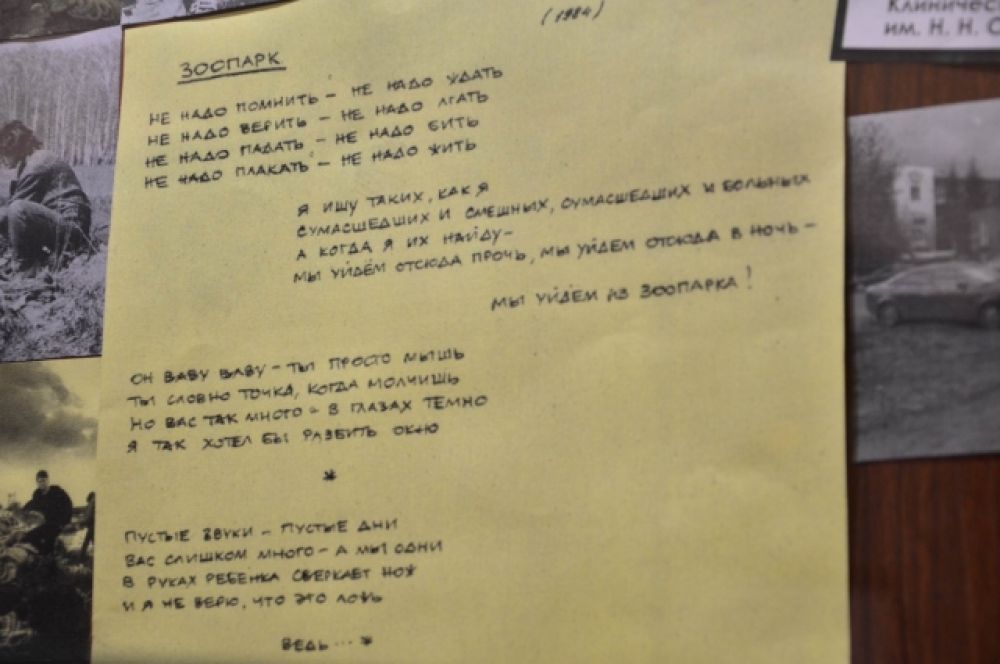 (1984)
ЗООПАРК
НЕ НАДО ПОМНИТЬ – НЕ НАДО ЖДАТЬ
НЕ НАДО ВЕРИТЬ – НЕ НАДО ЛГАТЬ
НЕ НАДО ПАДАТЬ – НЕ НАДО БИТЬ
НЕ НАДО ПЛАКАТЬ – НЕ НАДО ЖИТЬ
Я ИЩУ ТАКИХ, КАК Я
СУМАСШЕДШИХ И СМЕШНЫХ, СУМАСШЕДШИХ И БОЛЬНЫХ
А КОГДА Я ИХ НАЙДУ–
МЫ УЙДЁМ ОТСЮДА ПРОЧЬ, МЫ УЙДЕМ ОТСЮДА В НОЧЬ –
МЫ УЙДЁМ ИЗ ЗООПАРКА!
ОН ВАВУ ВАВУ – ТЫ ПРОСТО МЫШЬ
ТЫ СЛОВНО ТОЧКА, КОГДА МОЛЧИШЬ
НО ВАС ТАК МНОГО – В ГЛАЗАХ ТЕМНО
Я ТАК ХОТЕЛ БЫ РАЗБИТЬ ОКНО
*
ПУСТЫЕ ЗВУКИ – ПУСТЫЕ ДНИ
ВАС СЛИШКОМ МНОГО – А МЫ ОДНИ
В РУКАХ РЕБЕНКА СВЕРКАЕТ НОЖ
И Я НЕ ВЕРЮ, ЧТО ЭТО ЛОЖЬ
ВЕДЬ... *
им. Н. Н.